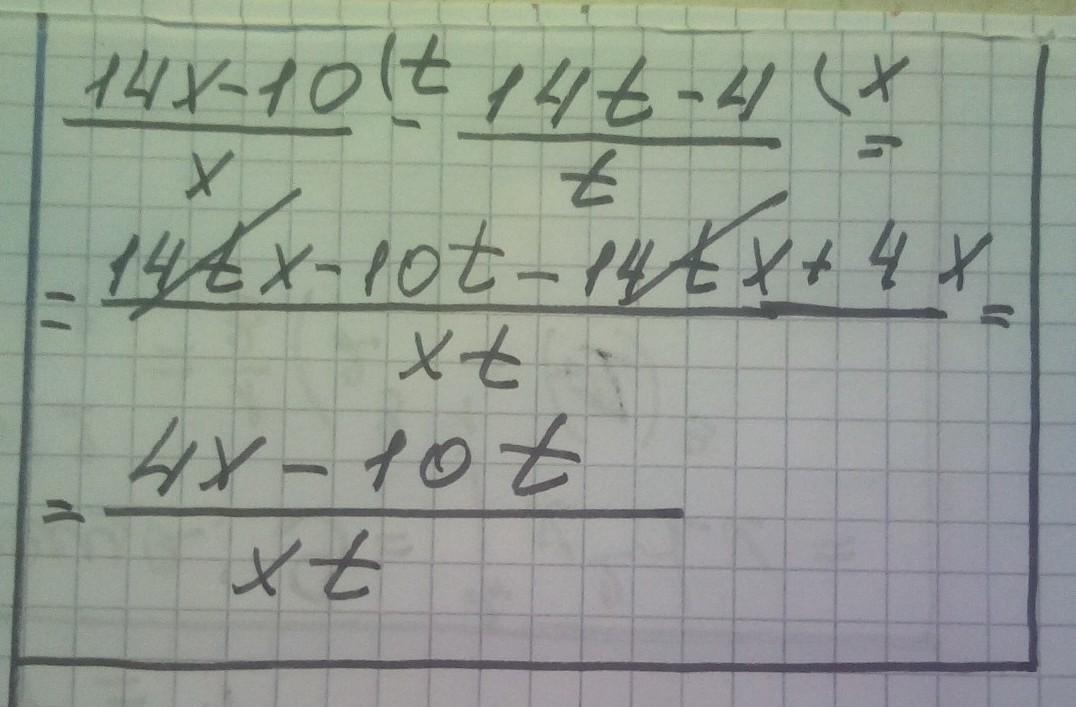 14x-10 (t - 14t-4 (x =
x t
= 14tx-10t-14tx+4x =
xt
= 4x-10t
xt